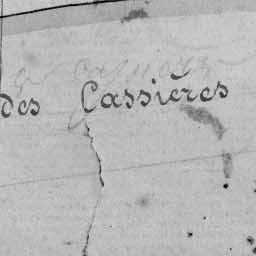 des Cassières